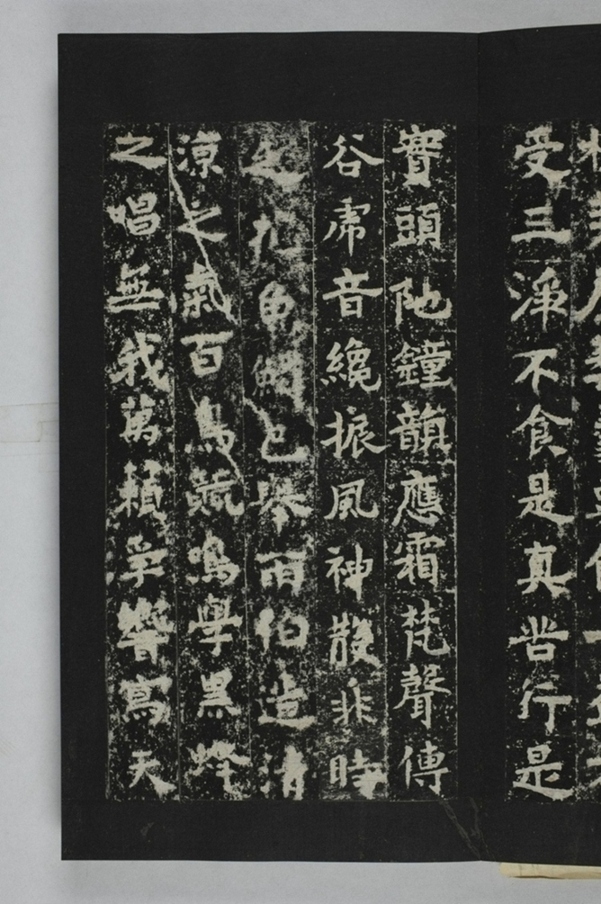 受三淨不食是真苦行是
賓頭陁鐘韻應霜梵聲傳
谷虎音纔振風神散非時
之魚鱗已舉雨伯造清
涼之氣百鳥競鳴學黑蜂
之唱無我萬籟爭響寫天